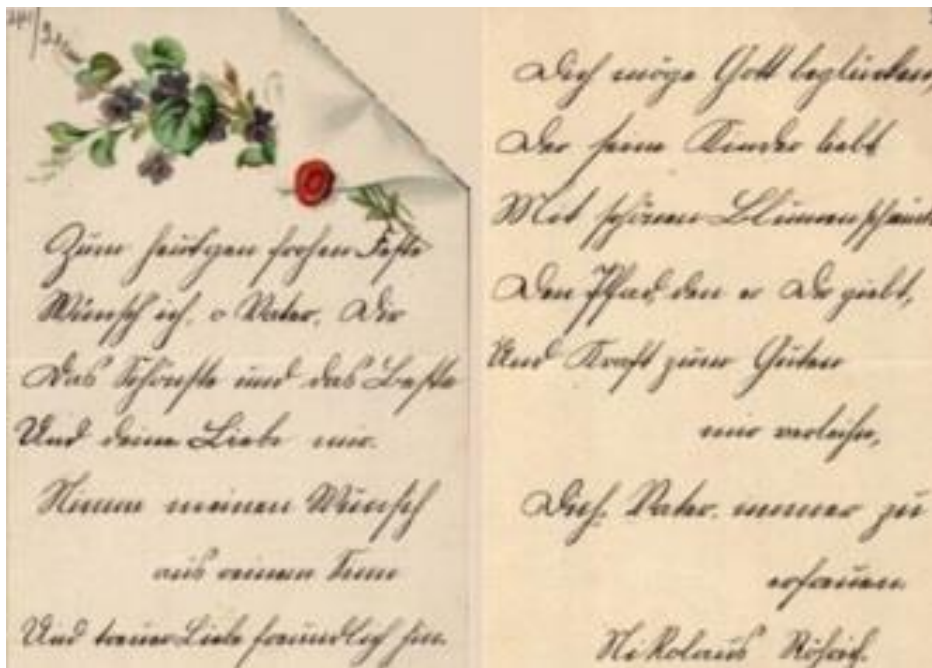 Zum heutgen frohen Feste
Wünsch ich, o Vater, Dir
Das Schönste und das Beste
Und deine Liebe mir.
Nimm meinen Wunsch
aus reinem Sinn
Und treuer Liebe freundlich hin.
Dich möge Gott beglücken,
Der seine Kinder liebt
Mit schönen Blumen schmück
Den Pfad, den er Dir giebt,
Und Kraft zum Guten
mir verleihn,
Dich, Vater, immer zu
erfreuen.
Nikolaus